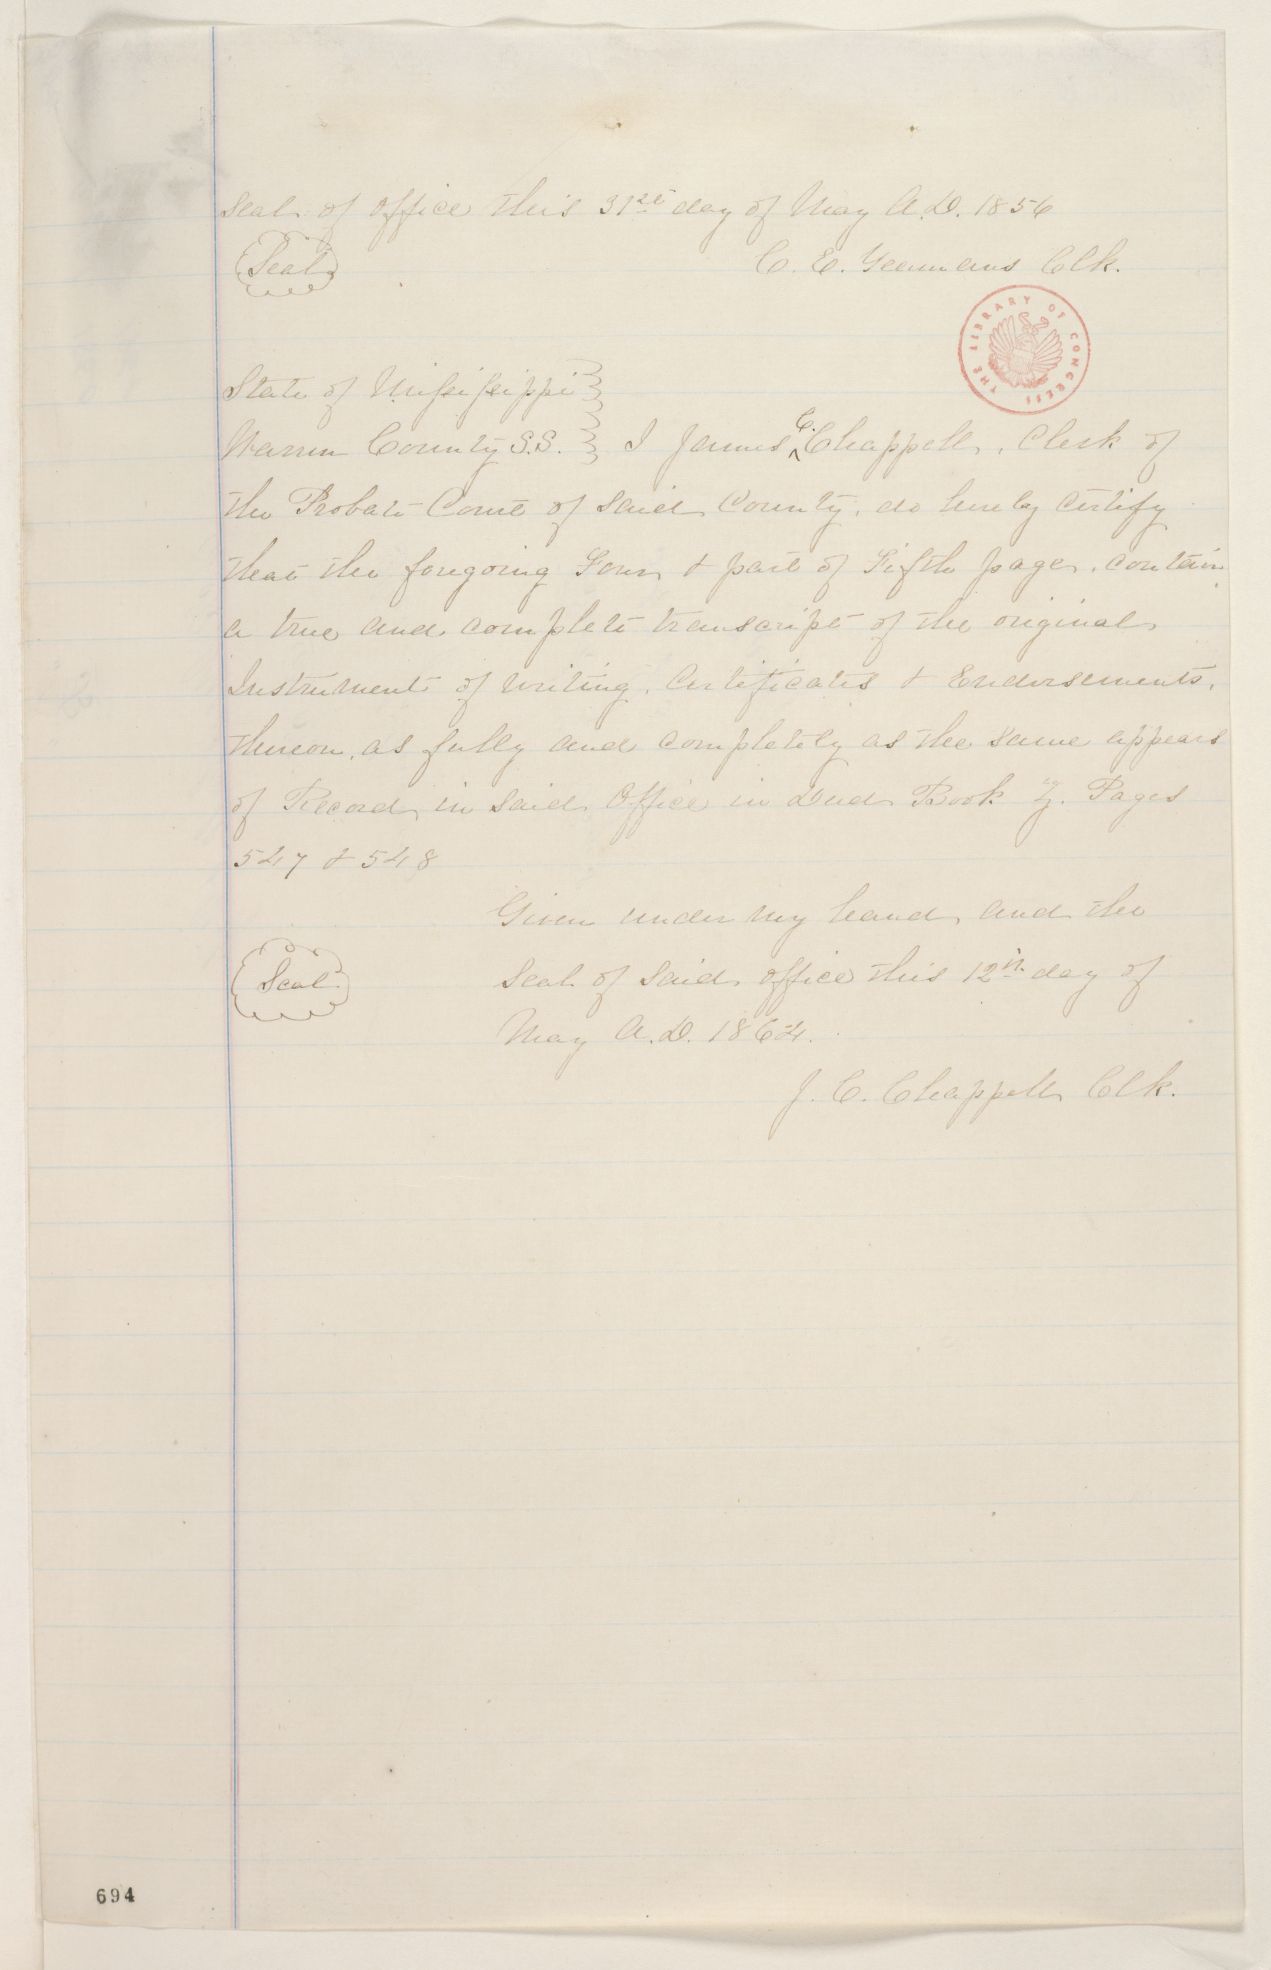 Seal of office this 31st day of May A.D. 1856
Seal
C. E. Yeamans Clk.
THE LIBRARY OF CONGRESS
State of Mississippi
Warren County S.S. I James C. Chappell, Clerk of
the Probate Court of said County, do hereby certify
that the foregoing Four & part of Fifth pages, contain
a true and complete transcript of the original
Instrument of writing, Certificates & Endorsements,
thereon, as fully and completely as the same appears
of Record in said Office in Deed Book Pages
547 & 548
Given under my hand, and the
Seal
Seal of said office this 12th day of
May A.D. 1864.
J. C. Chappell Clk.
694